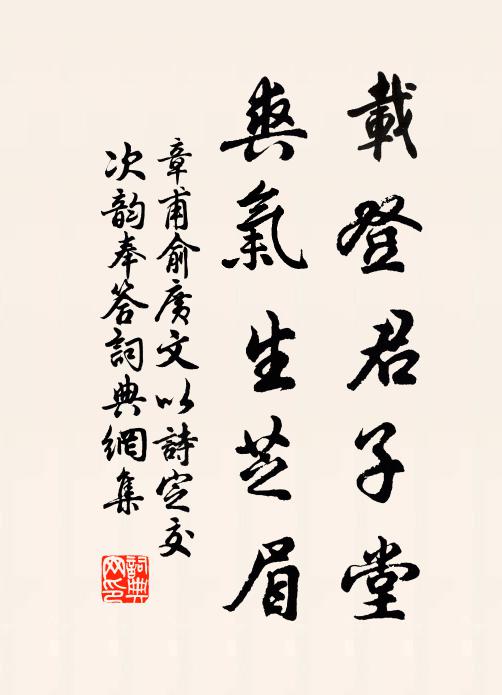 載登君子堂
爽氣生芝眉
章甫俞廣文以詩定交
次韵奉答詞典網集
詞典
网印